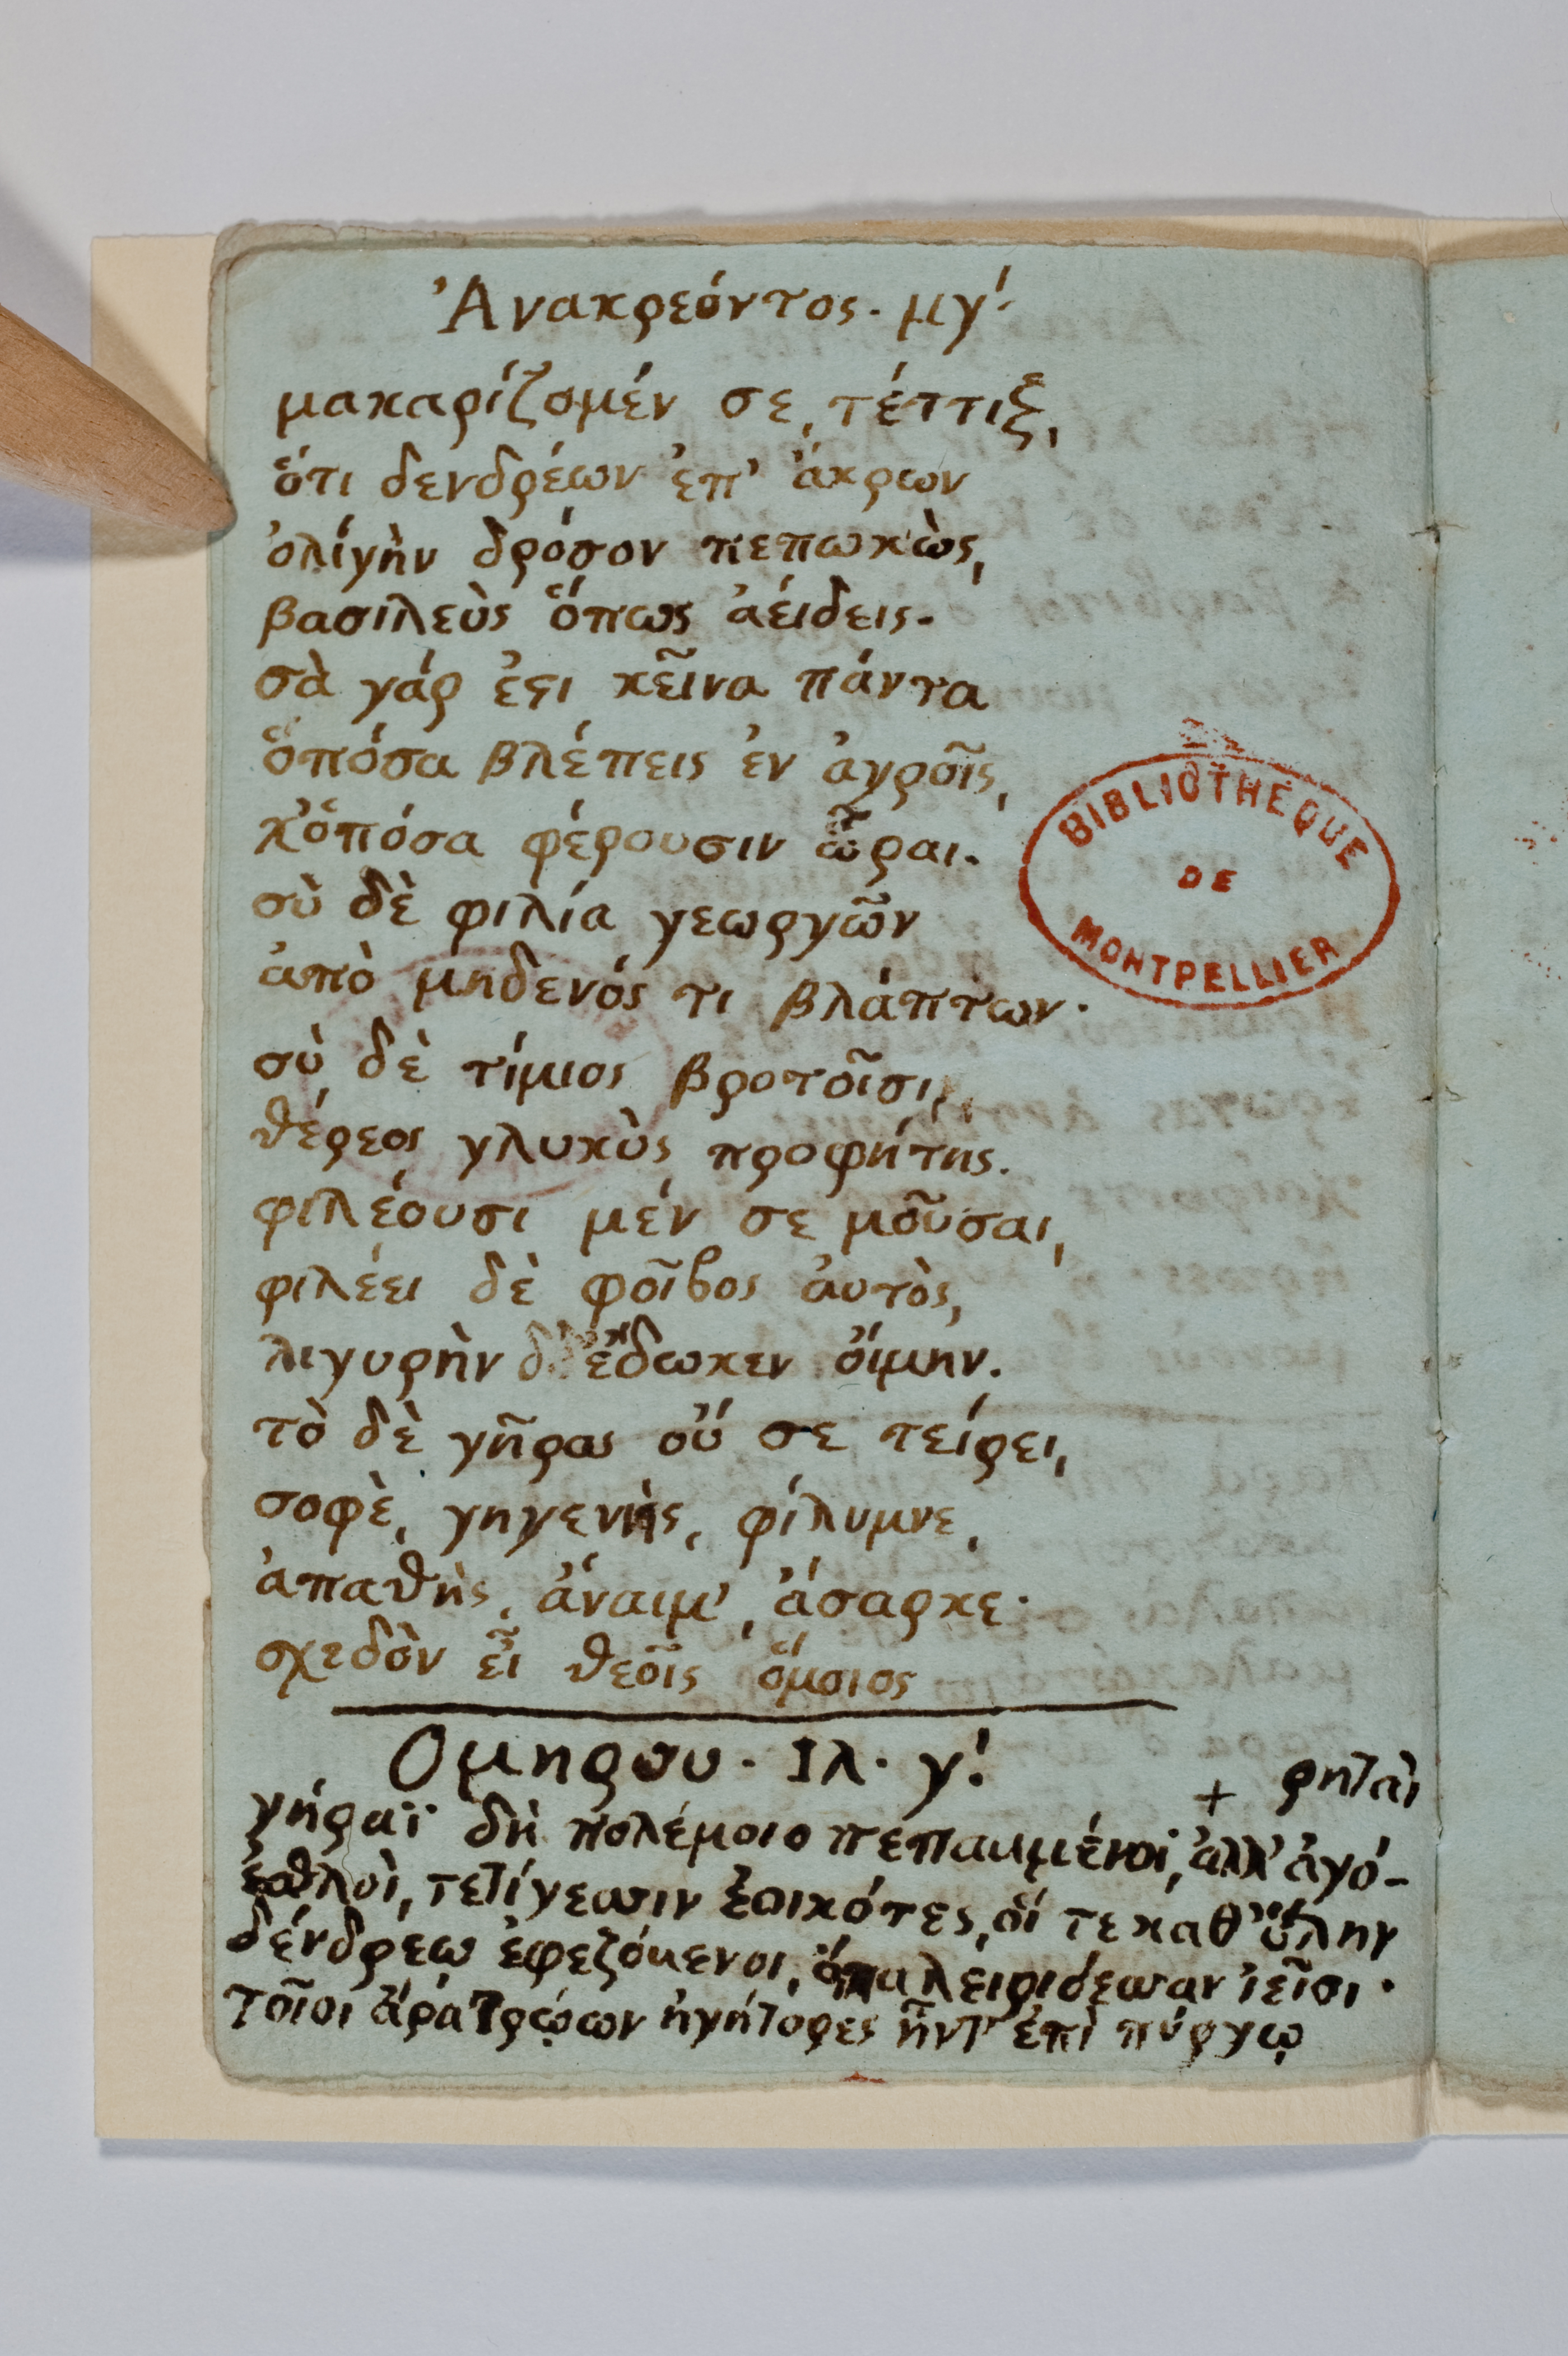 Ἀνακρεόντος. μγ'.
μακαρίζομέν σε, τέττιξ,
ὅτι δενδρέων ἐπ' ἄκρων
ὀλίγὴν δρόσον πεπωκὼς,
βασιλεὺς ὅπως ἀείδεις.
σὰ γάρ ἐϛι κεῖνα πάντα
ὅπόσα βλέπεις ἐν ἀγροῖς,
χ'ὅπόσα φέρουσιν ὧραι.
σὺ δὲ φιλία γεωργῶν
ἀπὸ μηδενός τι βλάπτων.
σὺ δὲ τίμιος βροτοῖσι,
θέρεος γλυκὺς προφήτης.
φιλέουσι μέν σε μοῦσαι,
φιλέει δὲ φοῖβος ἀυτὸς,
λιγυρὴν δ' ἔδωκεν ὄιμην.
τὸ δὲ γῆρας οὔ σε τείρει,
σοφὲ, γηγενὴς, φίλυμνε,
ἀπαθὴς, ἄναιμ', ἄσαρκε.
σχεδὸν εἶ θεοῖς ὅμοιος
Ομηρου. Ιλ. γ'.
+ ρηταὶ
γήραϊ δὴ πολέμοιο πεπαυμένοι, ἀλλ' ἀγό-
ἐσθλοὶ, τετίγεσσιν ἐοικότες, οἵ τε καθ' ὕλην
δένδρέῳ ἐφεζόμενοι, ὄπα λειριόεσσαν ἱεῖσι.
τοῖσι ἄρα Τρώων ἡγήτορες ἧντ' ἐπὶ πύργῳ
BIBLIOTHEQUE
DE
MONTPELLIER